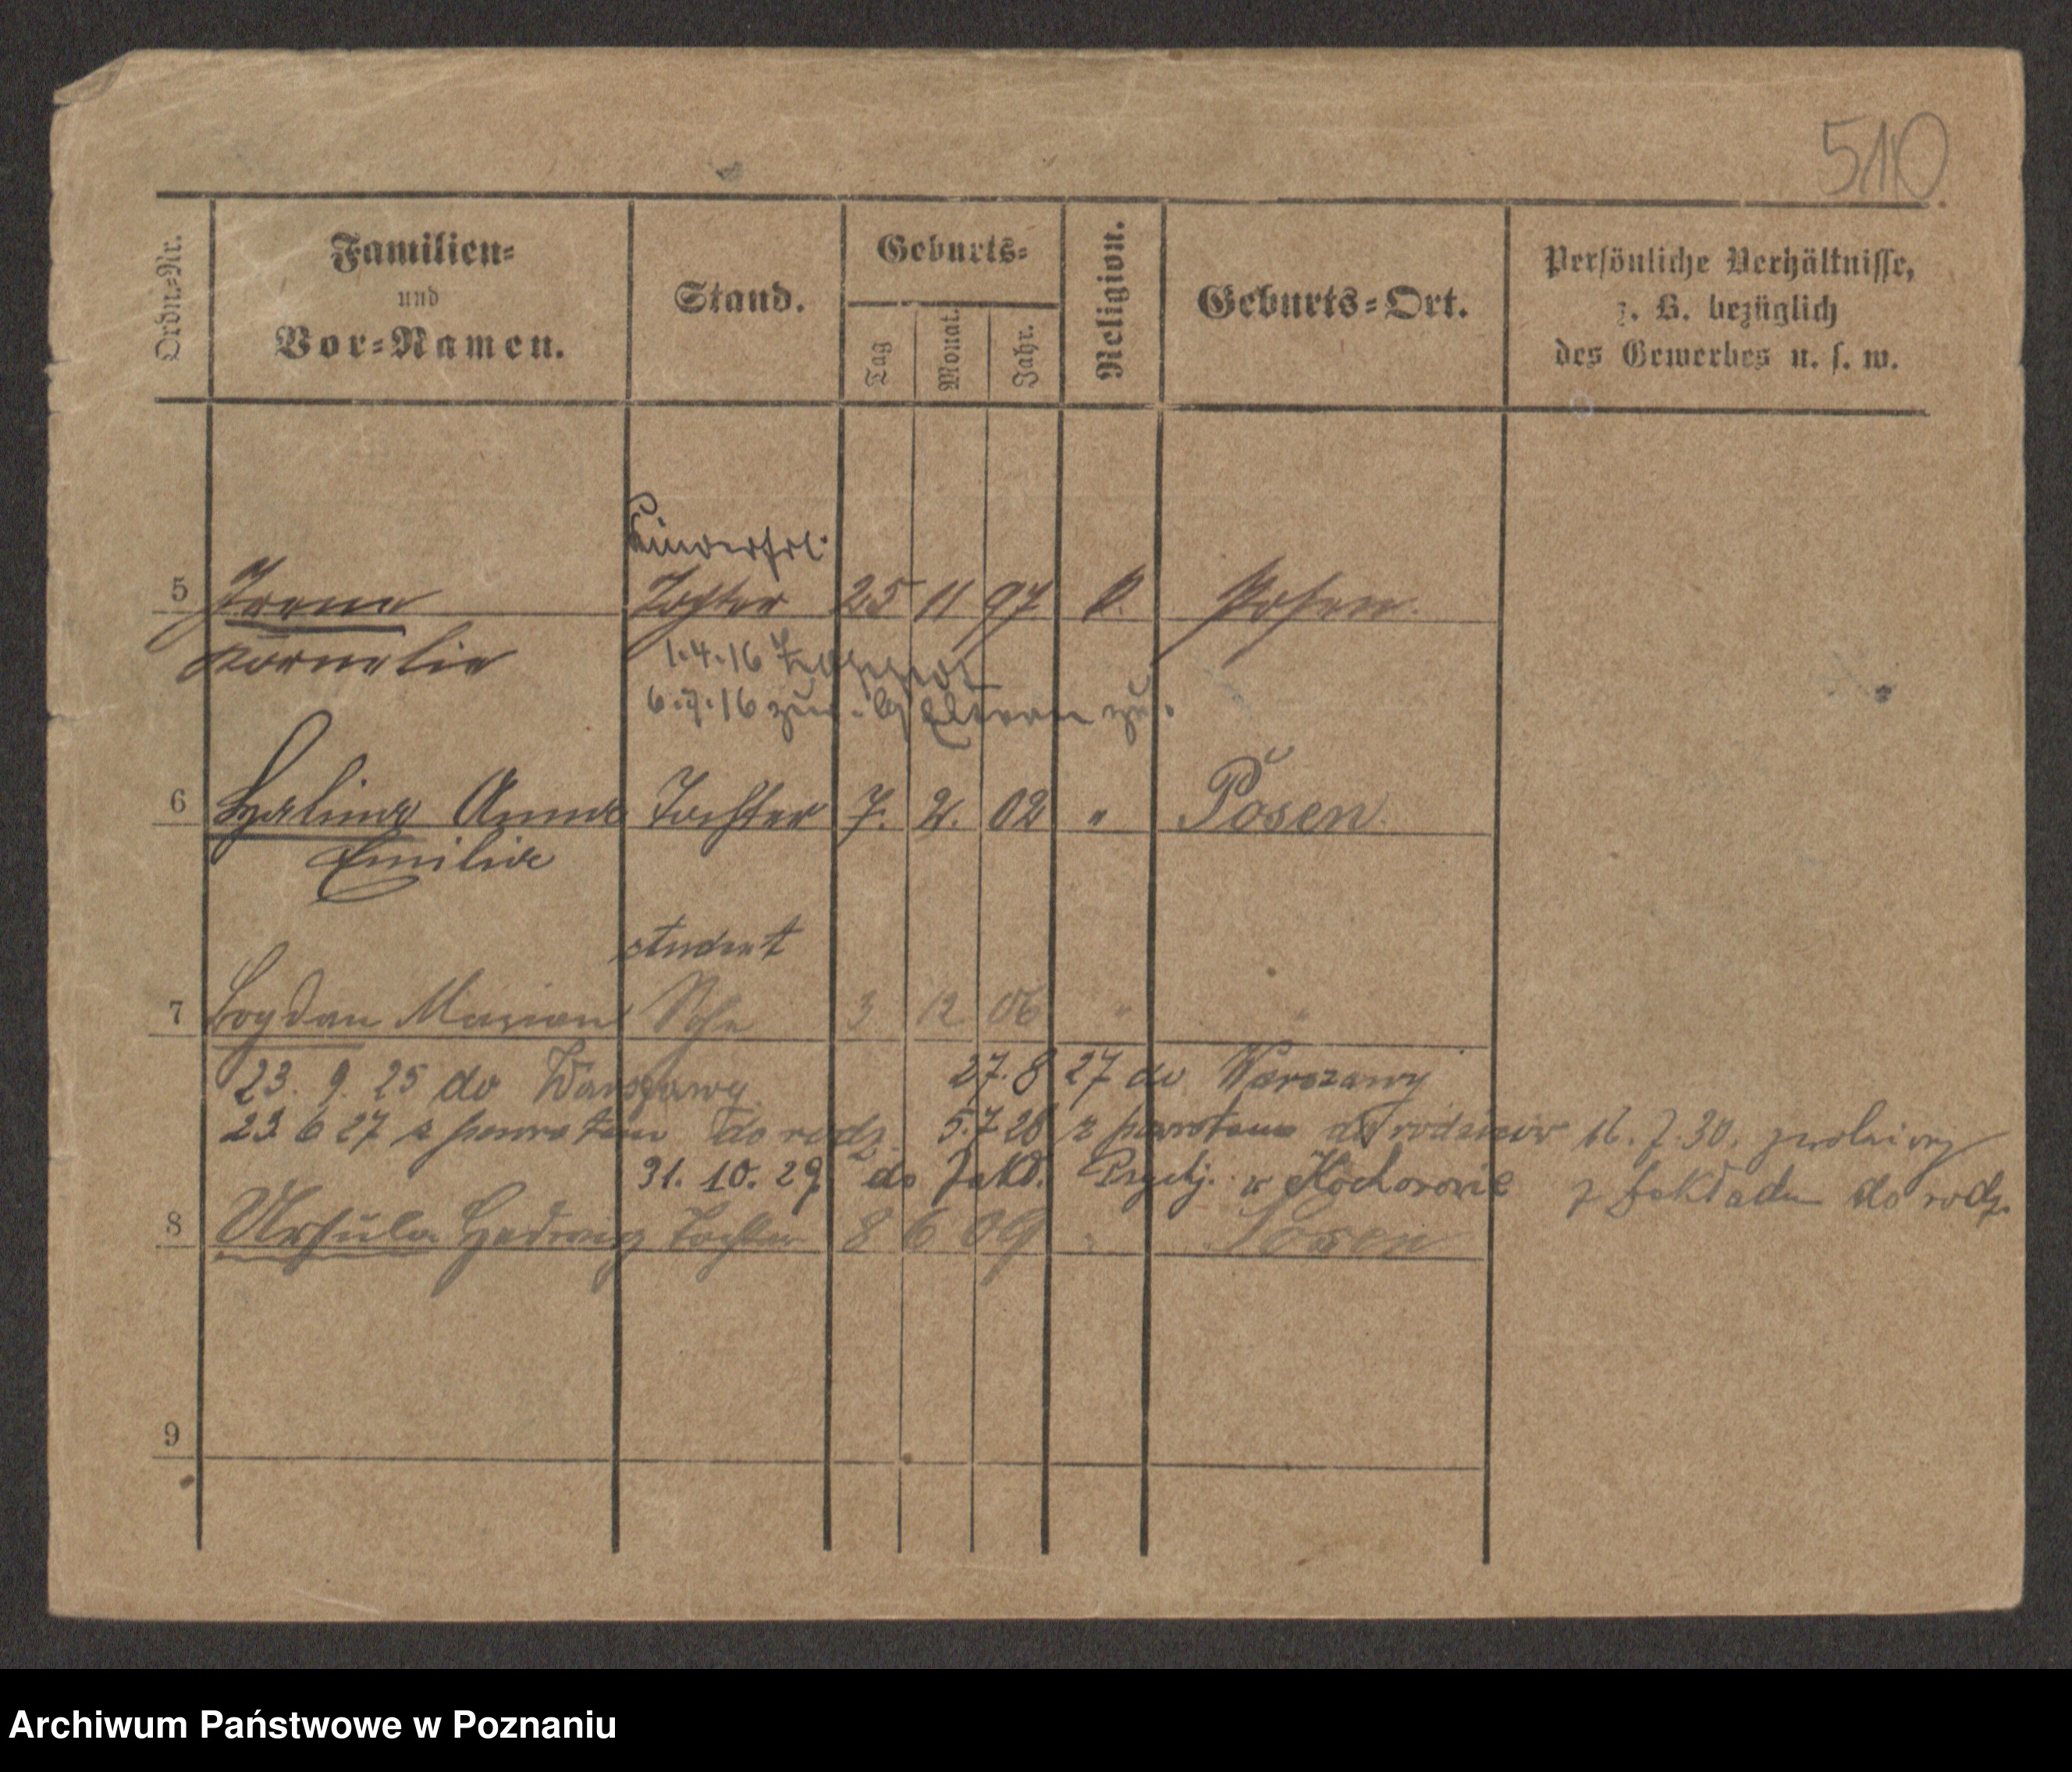 510
Ordn.-Nr.
Familien-
und
Vor-Namen.
Stand.
Geburts-
Tag
Monat.
Jahr.
Religion.
Geburts-Ort.
Persönliche Verhältnisse,
z. B. bezüglich
des Gewerbes u. s. w.
Kinderfrl.
5 Irene Tochter 25 11 97 k. Posen.
Kornelia
1.4.16
6.7.16 zur. Eltern zu.
6 Halina Anna Tochter 7. 2. 02 " Posen.
Emilie
student
7 Bogdan Marian Sohn 3 12 06 " "
23. 9. 25 do Warszawy 27. 8 27 do Warszawy
23 6 27 z powrotem do rodz. 5.7 28 z powrotem do rodziców 16. 7. 30. zwolniony
31. 10. 29 do Zakł. Psychj. w Kochorowie z Zakładu do rodz.
8 Ursula Hedwig Tochter 8 6 09 " Posen
9
Archiwum Państwowe w Poznaniu